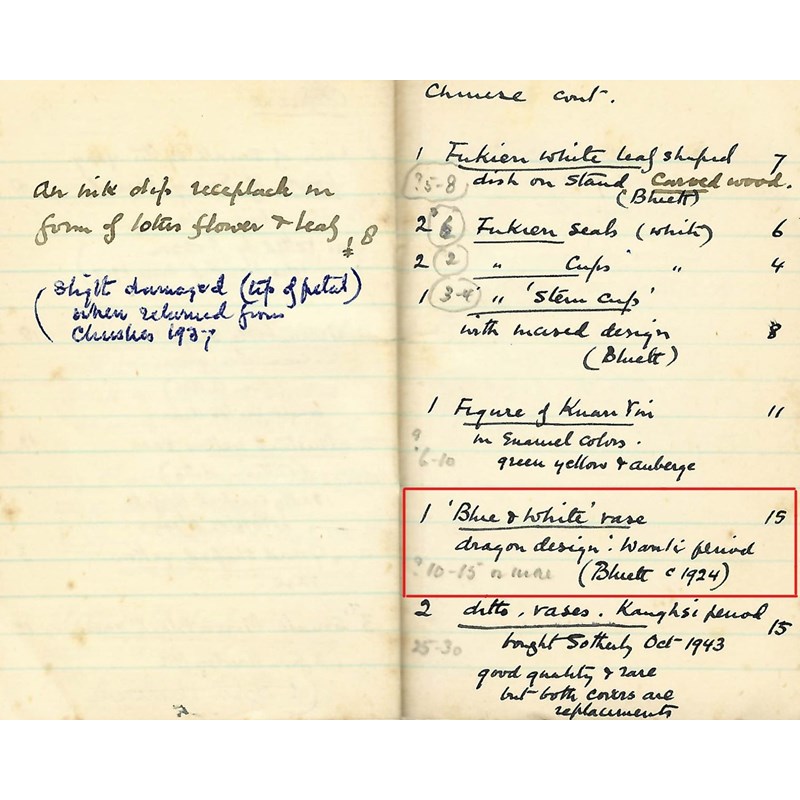 An ink dip receptacle in
form of lotus flower & leaf 8
*
(slight damaged (tip of petal)
when returned from
1937
Chinese cont.
1 Fukien white leaf shaped 7
dish on stand Carved wood.
?5-8
(Bluett)
2 6 Fukien seals (white) 6
2 2 " Cups " 4
1 3-4 " 'Stem Cups'
with incised design 8
(Bluett)
1 Figure of Kuan Yin 11
in Enamel colors.
? 6-10 green yellow & auberge
1 'Blue & White' vase 15
dragon design. Wanli period
?10-15 or more (Bluett c 1924)
2 ditto. vases. Kanghsi period 15
25-30 bought Sotheby Oct 1943
good quality & rare
but both covers are
replacements